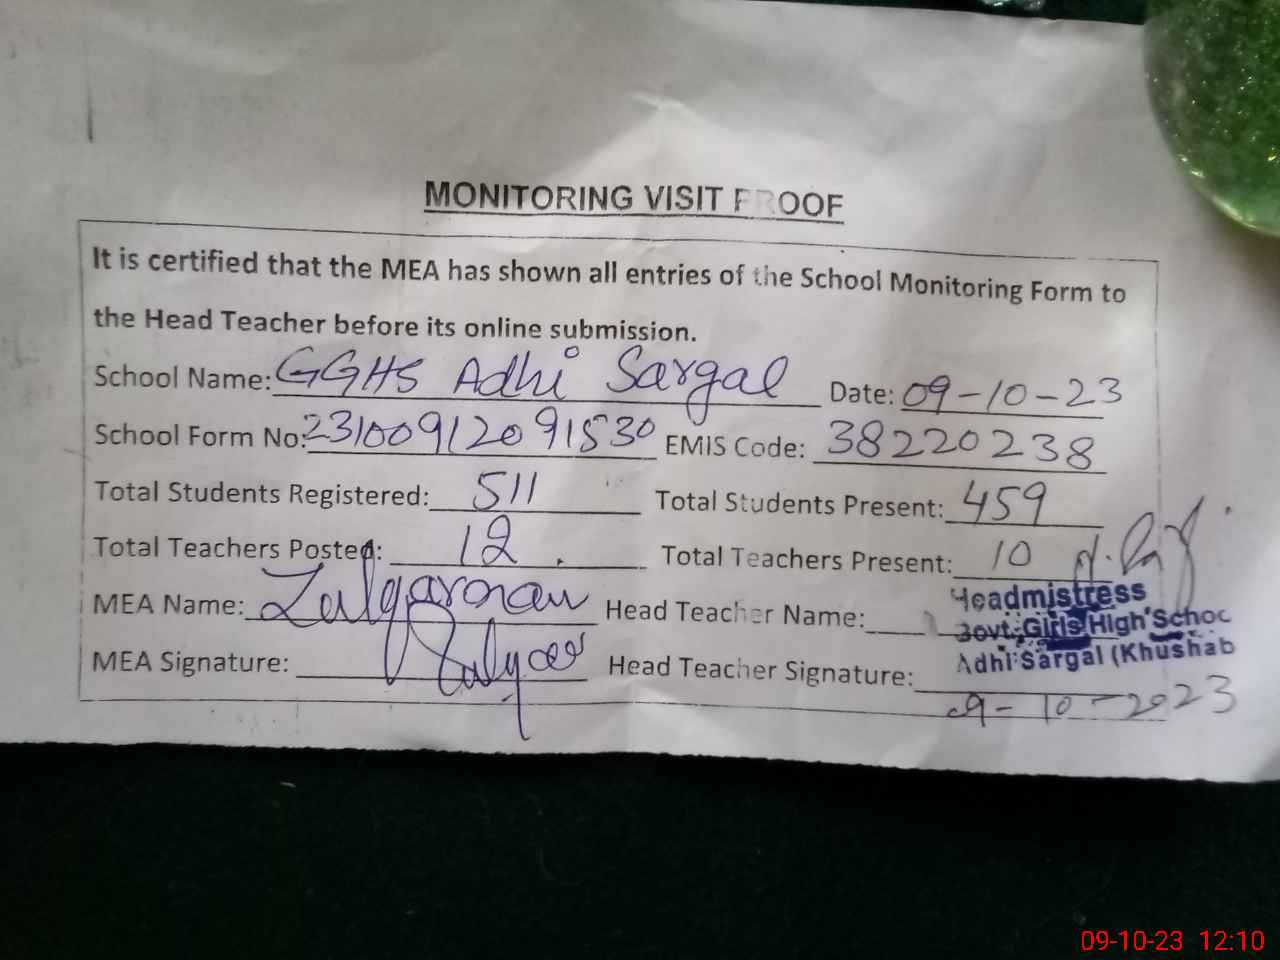 MONITORING VISIT PROOF
It is certified that the MEA has shown all entries of the School Monitoring Form to
the Head Teacher before its online submission.
School Name: GGHS Adhi Sargal Date: 09-10-23
School Form No: 23100912091530 EMIS Code: 38220238
Total Students Registered: 511 Total Students Present: 459
Total Teachers Posted: 12 Total Teachers Present: 10
MEA Name: Head Teacher Name:
Headmistress
Govt. Girls High Schoo
MEA Signature: Head Teacher Signature:
Adhi Sargal (Khushab
9-10-2023
09-10-23 12:10